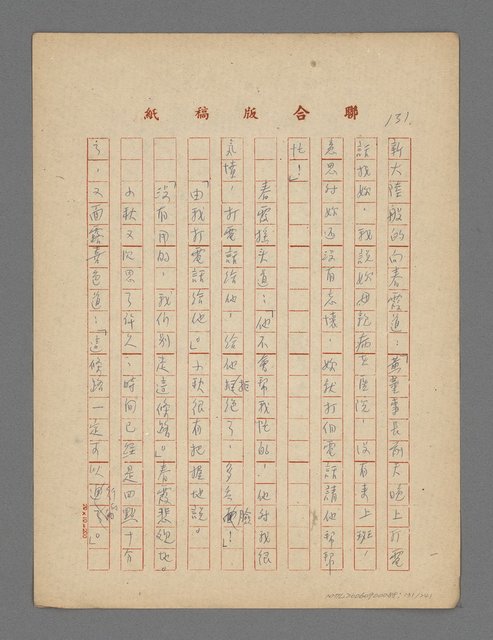 聯合版稿紙
131.
新大陸般的向春霞道：「黃董事長前天晚上打電
話找妳，我說妳母親病在醫院，沒有來上班，
意思对妳还沒有忘懷，妳就打個電話請他幫幫
忙！」
春霞搖头道：「他不會幫我忙的，他对我很
氣憤，打電話給他，給他拒絕了，多丟臉！」
「由我打電話給他。」小秋很有把握地說。
「沒有用的，我们別走這條路。」春霞悲觀地。
小秋又沉思了许久，時间已經是四點十分
了，又面露喜色道：「這條路一定可以行的通。」
20×10=200
NMTL20060900088: 131/241